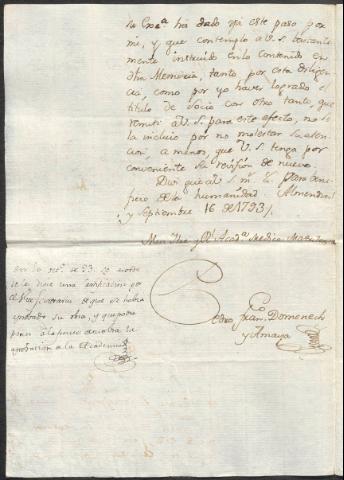 su Exc.ª ha dado ya este paso por
mi, y que contemplo a V. S. bastante
mente instruido en lo contenido en
dha Memoria, tanto, por esta diligen
cia, como por yo haver logrado el
titulo de Socio con otro tanto que
remiti a V. S. para este efecto, no se
la incluio por no molestar su aten
cion, a menos, que V. S. tenga por
conveniente su revision de nuevo.
Dios gue a V. S. m.s a.s para bene
ficio de la humanidad Almendral
y Septiembre 16 de 1793/.
Mui Ille y R.l Acad.ª Medica Matritense
en 10 de 93. se
se le hizo una certificacion por
el Vice Secretario de que se habia
aprobado su obra, y que podia
poner la
aprobacion de la Academia
Pedro Fran.co Domenech
y Amaya